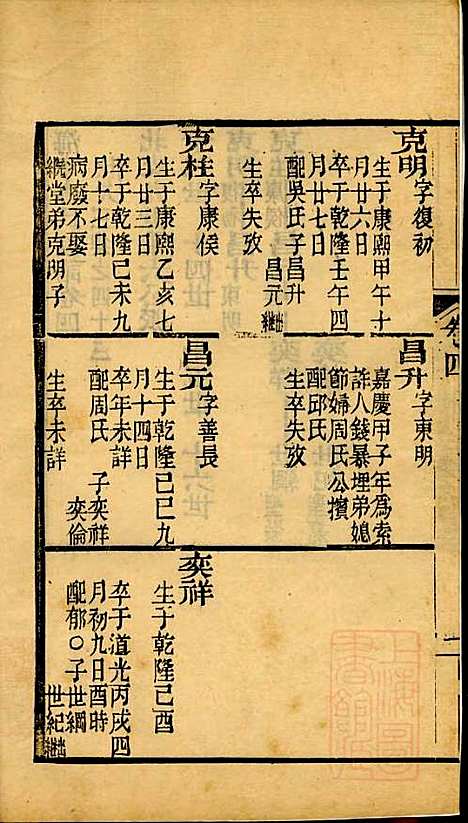 卷四
克明字復初
生于康熙甲午十
月廿六日
卒于乾隆壬午四
月廿七日
配吳氏子昌升
昌元出継
生卒失攷
克柱字康侯
生于康熙乙亥七
月廿三日
卒于乾隆己未九
月十七日
病廢不娶
継堂弟克明子
昌升字東明
嘉慶甲子年爲索
詐人錢暴埋弟媳
節婦周氏公擯
配邱氏
生卒失攷
昌元字善長
生于乾隆己巳九
月十四日
卒年未詳
配周氏 子奕祥
奕倫
生卒未詳
奕祥
生于乾隆己酉
卒于道光丙戌四
月初九日酉時
配郁〇子世綱
世紀出継
上海圖書館藏